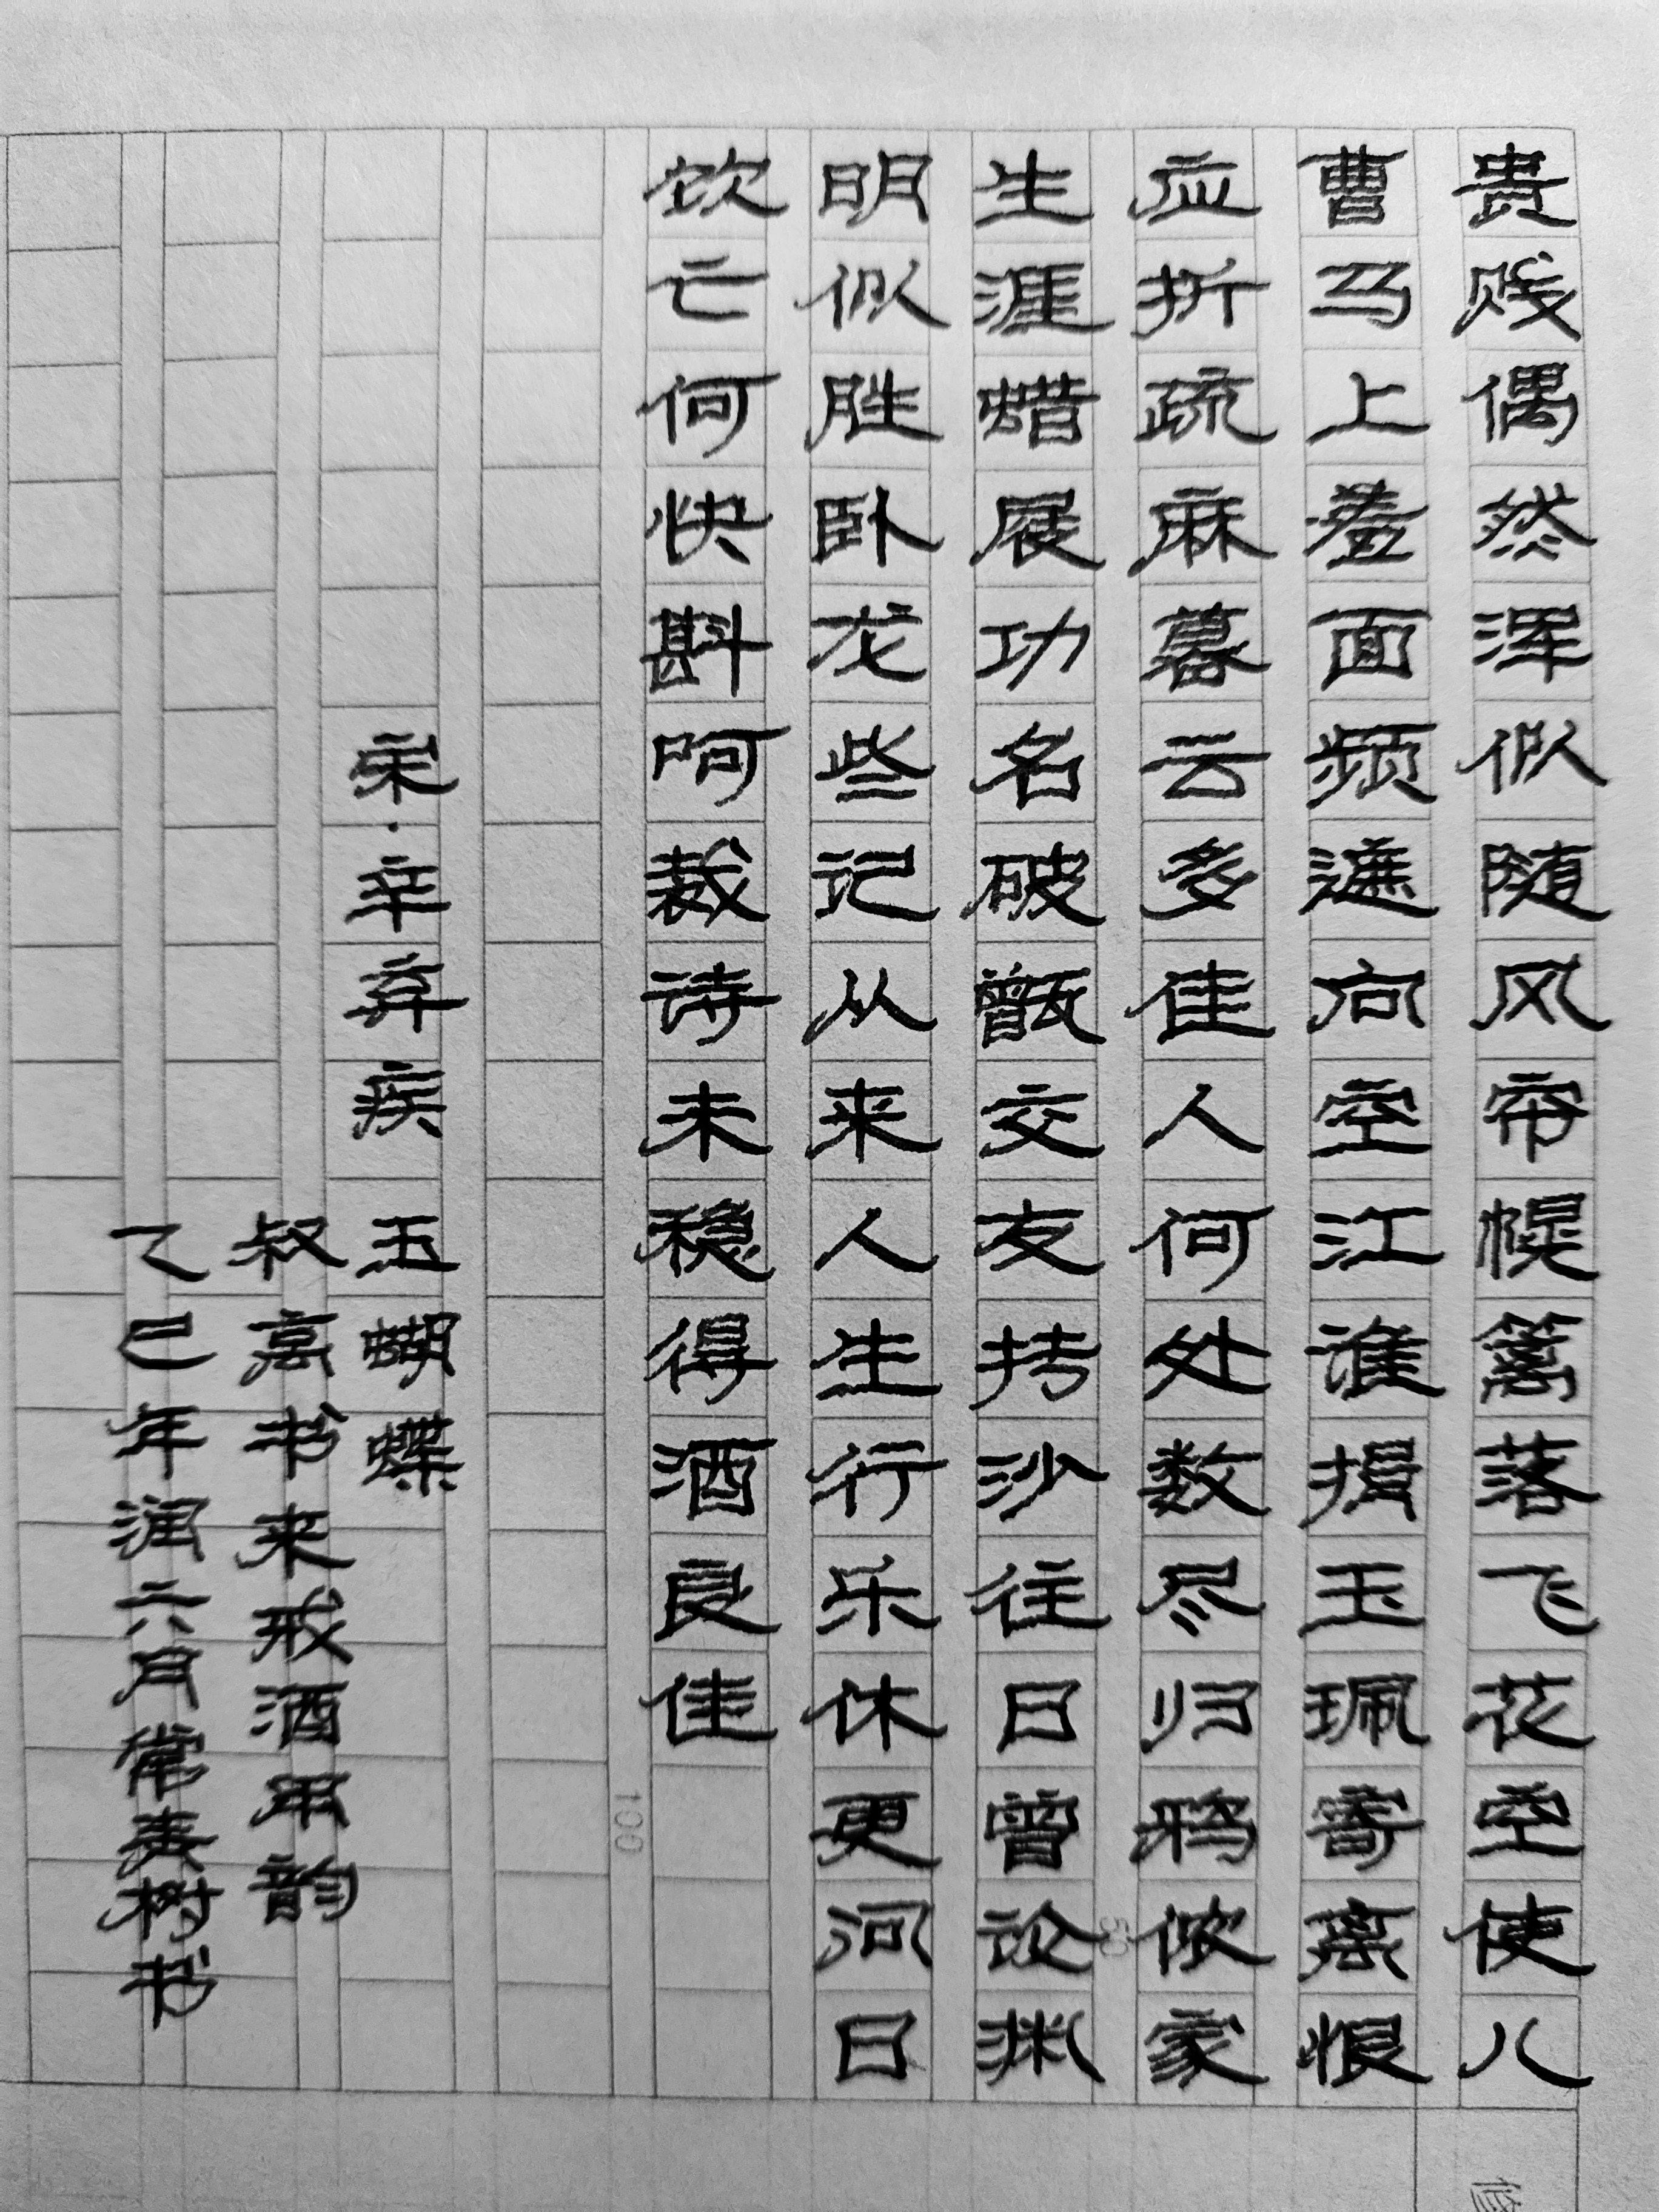 贵贱偶然浑似随风帘幌篱落飞花空使儿
曹马上羞面频遮向空江谁捐玉珮寄离恨
应折疏麻暮云多佳人何处数尽归鸦侬家
生涯蜡屐功名破甑交友抟沙往日曾论渊
明似胜卧龙些记从来人生行乐休更河日
饮亡何快斟呵裁诗未稳得酒良佳
宋·辛弃疾 玉蝴蝶
叔高书来戒酒用韵
乙巳年润六月常青树书
50
100